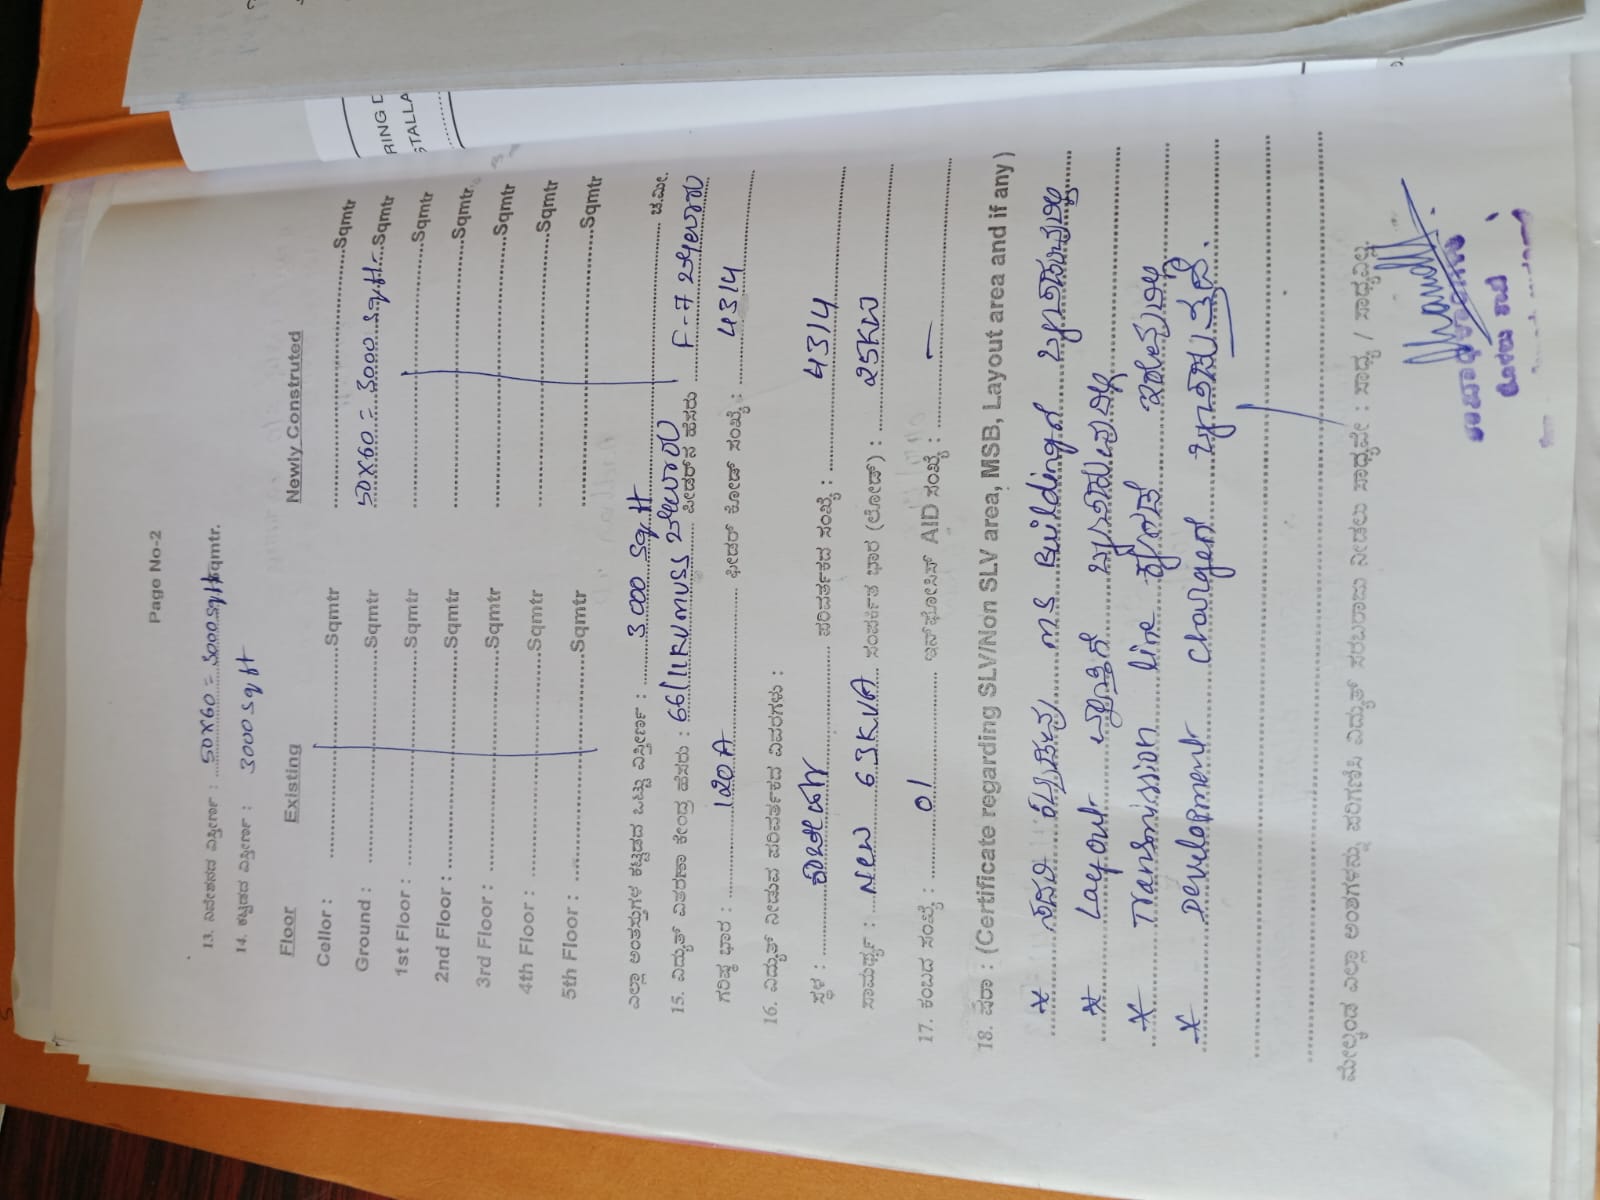 RING D
STALLA
Page No-2
13. ನಿವೇಶನದ ವಿಸ್ತೀರ್ಣ : 50X60 = 3000 sqft Sqmtr.
14. ಕಟ್ಟಡದ ವಿಸ್ತೀರ್ಣ : 3000 sq ft
Floor Existing Newly Constructed
Cellor : Sqmtr Sqmtr
Ground : Sqmtr 50X60 = 3000 sqft Sqmtr
1st Floor : Sqmtr Sqmtr
2nd Floor : Sqmtr Sqmtr
3rd Floor : Sqmtr Sqmtr
4th Floor : Sqmtr Sqmtr
5th Floor : Sqmtr Sqmtr
ಎಲ್ಲಾ ಅಂತಸ್ತುಗಳ ಕಟ್ಟಡದ ಒಟ್ಟು ವಿಸ್ತೀರ್ಣ : 3000 sq ft ಚ.ಮೀ.
15. ವಿದ್ಯುತ್ ವಿತರಣಾ ಕೇಂದ್ರ ಹೆಸರು : 66/11KV MUSS ಬೇಲೂರು ಫೀಡರ್‌ನ ಹೆಸರು F-7 ಬೇಲೂರು
ಗರಿಷ್ಠ ಭಾರ : 120A ಫೀಡರ್ ಕೋಡ್ ಸಂಖ್ಯೆ : 4314
16. ವಿದ್ಯುತ್ ನೀಡುವ ಪರಿವರ್ತಕದ ವಿವರಗಳು :
ಸ್ಥಳ : ಪರಿವರ್ತಕದ ಸಂಖ್ಯೆ : 4314
ಸಾಮರ್ಥ್ಯ : New 63KVA ಸಂಪರ್ಕಿತ ಭಾರ (ಲೋಡ್) : 25KW
17. ಕಂಬದ ಸಂಖ್ಯೆ : 01 ಇನ್‌ಫೋಸಿಸ್ AID ಸಂಖ್ಯೆ : —
18. ಷರಾ : (Certificate regarding SLV/Non SLV area, MSB, Layout area and if any )
* ಸದರಿ ಕಟ್ಟಡವು MS Buildingಗೆ
* Layout
* Transmission line
* Development Chargeಗೆ
ಮೇಲ್ಕಂಡ ಎಲ್ಲಾ ಅಂಶಗಳನ್ನು ಪರಿಗಣಿಸಿ ವಿದ್ಯುತ್ ಸರಬರಾಜು ನೀಡಲು ಸಾಧ್ಯವೇ : ಸಾಧ್ಯ / ಸಾಧ್ಯವಿಲ್ಲ.